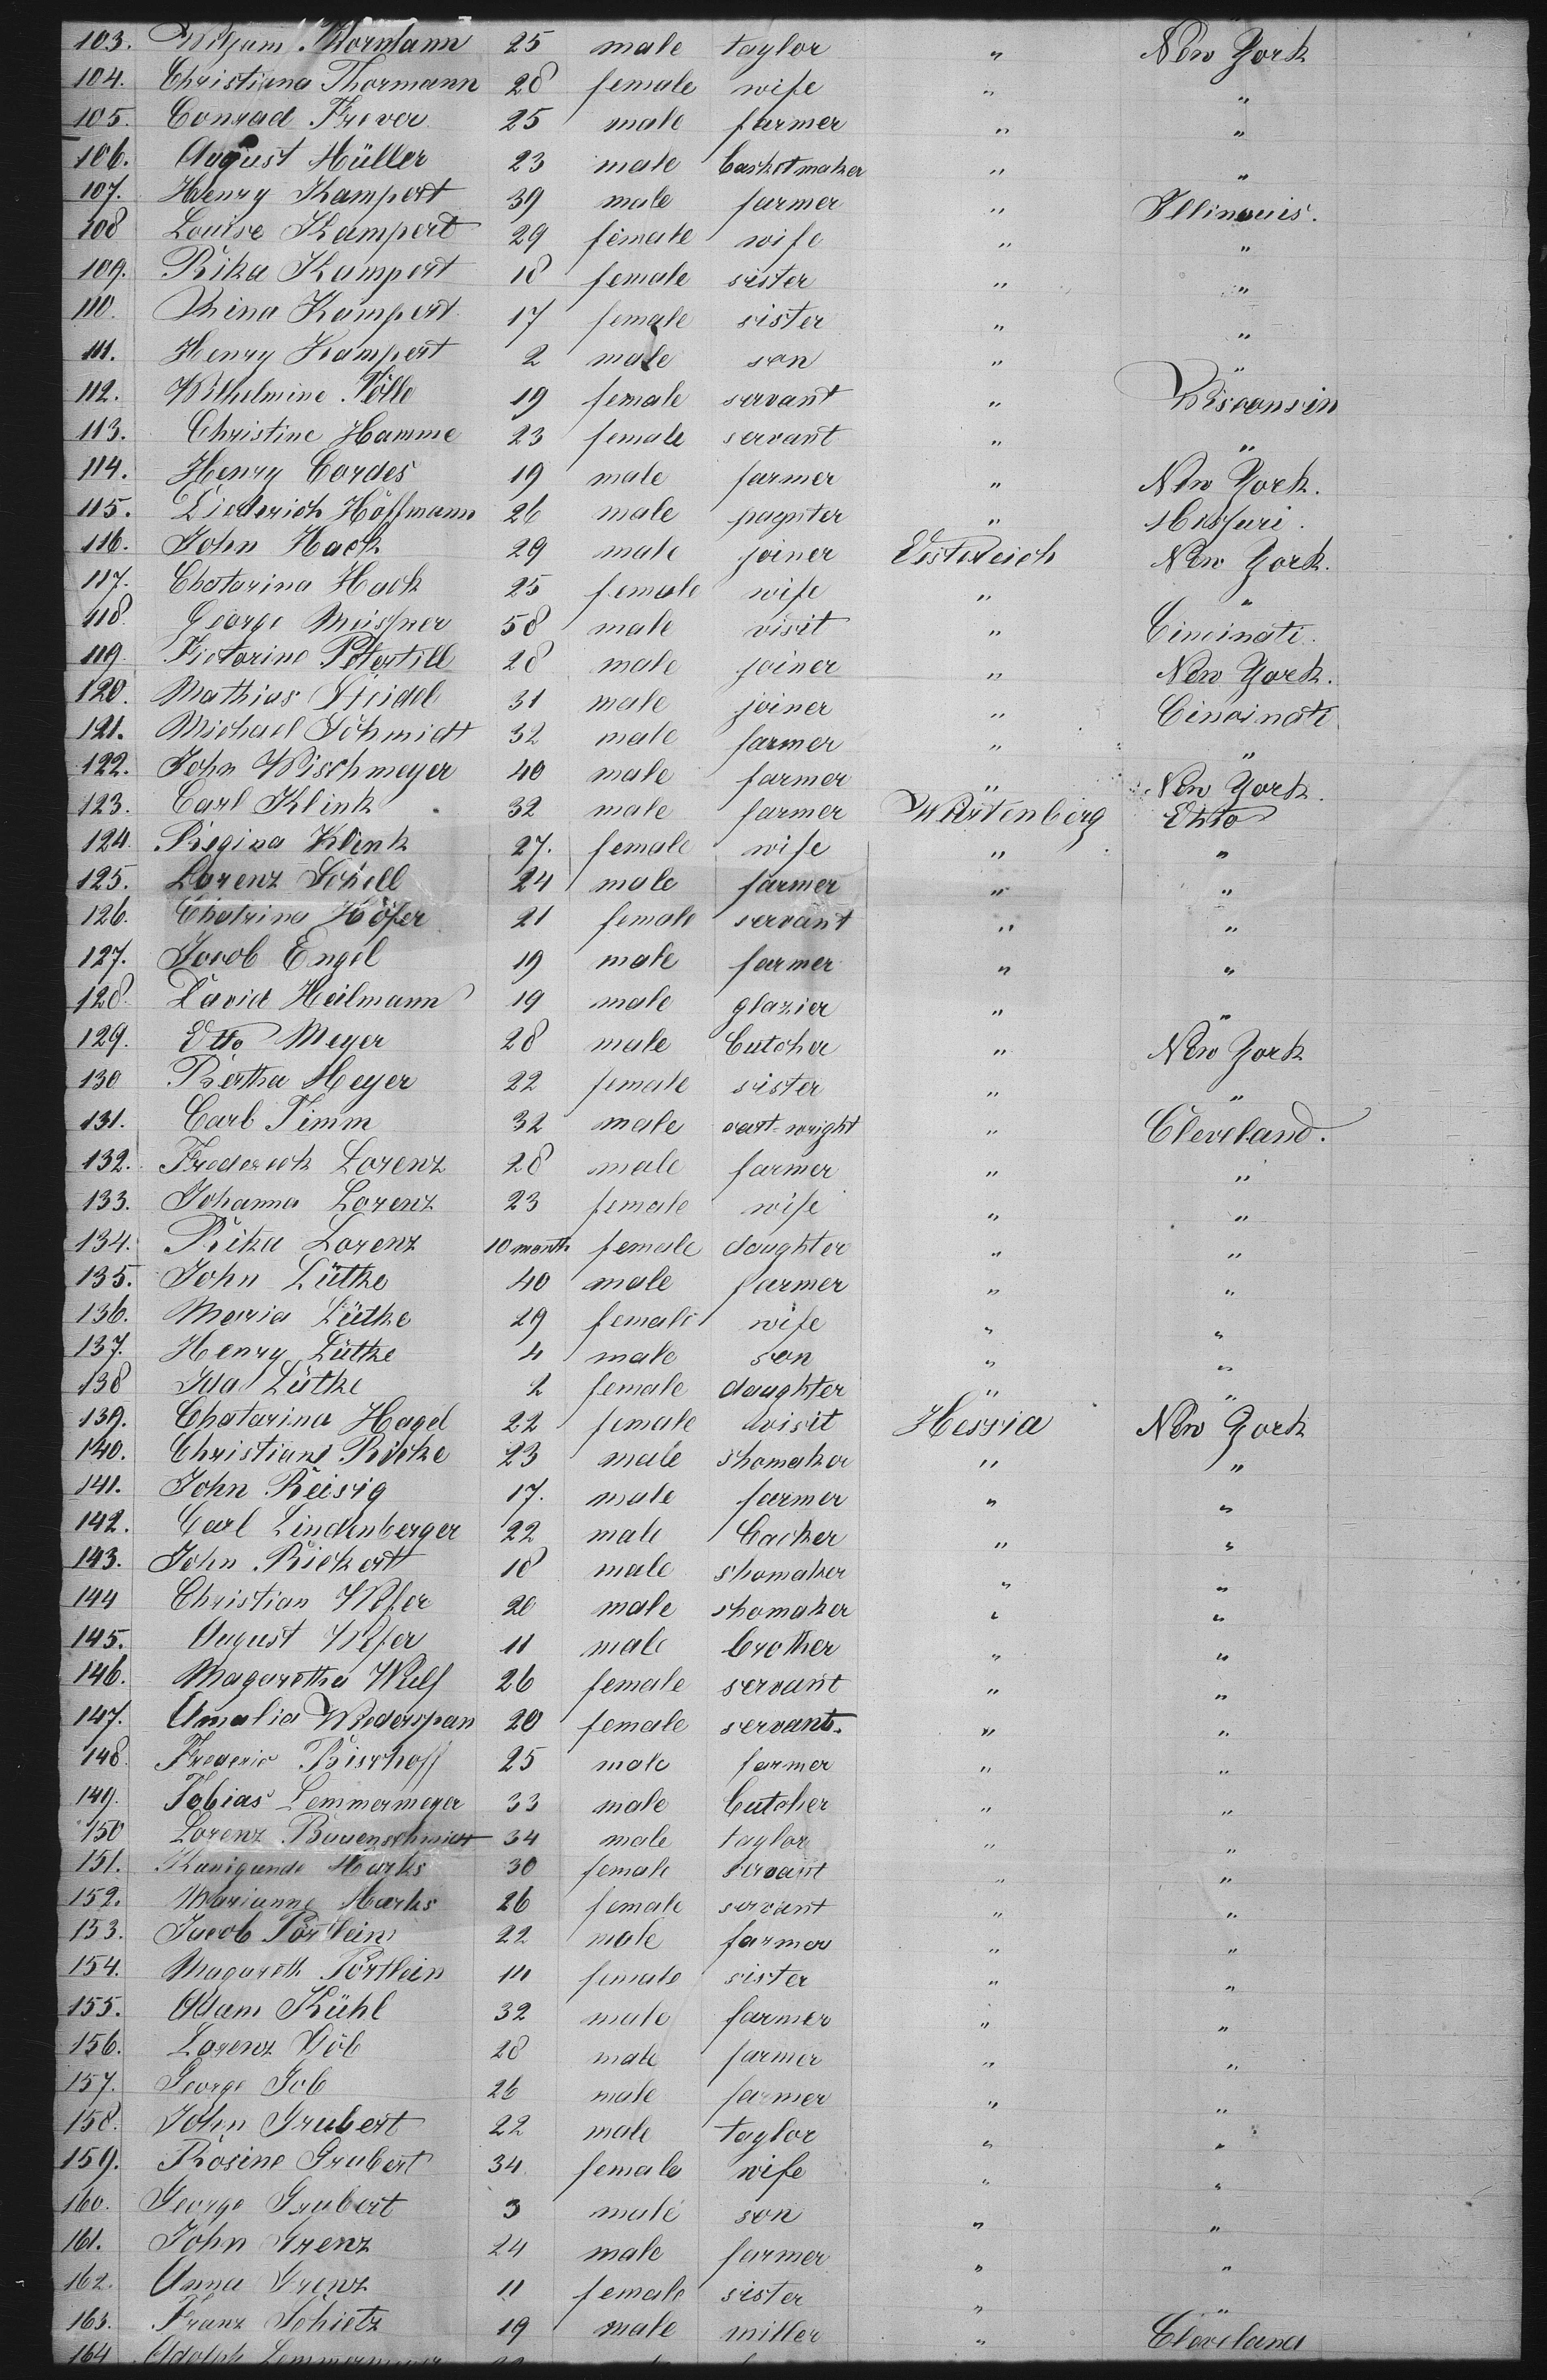 103. Wiljam Thormann 25 male taylor " New York
104. Christiana Thormann 28 female wife " "
105. Conrad Frever 25 male farmer " "
106. August Müller 23 male basketmaker " "
107. Henry Kampert 39 male farmer " Illinouis.
108 Louise Kampert 29 female wife " "
109. Rika Kampert 18 female sister " "
110. Mina Kampert 17 female sister " "
111. Henry Kampert 2 male son " "
112. Wilhelmine Nölle 19 female servant " Wisconsin
113. Christine Hamme 23 female servant " "
114. Henry Cordes 19 male farmer " New York.
115. Diederich Hoffmann 26 male paynter " Missuri.
116. John Hack 29 male joiner Oesterreich New York.
117. Chatarina Hack 25 female wife " "
118. George Meissner 58 male visit " Cincinati.
119. Victorine Petertill 28 male joiner " New York.
120. Mathias Seidel 31 male joiner " Cincinati
121. Michael Schmidt 32 male farmer " "
122. John Wischmeyer 40 male farmer " New York.
123. Carl Klink 32 male farmer Würtenberg Ohio
124. Regina Klink 27. female wife " "
125. Lorenz Schell 24 male farmer " "
126. Chatrina Höfer 21 female servant " "
127. Jacob Engel 19 male farmer " "
128. David Heilmann 19 male glazier " "
129. Otto Meyer 28 male butcher " New York
130 Bertha Meyer 22 female sister " "
131. Carl Timm 32 male cart-wright " Cleveland.
132. Frederick Lorenz 28 male farmer " "
133. Johanna Lorenz 23 female wife " "
134. Rika Lorenz 10 month female daughter " "
135. John Lütke 40 male farmer " "
136. Maria Lütke 29 female wife " "
137. Henry Lütke 4 male son " "
138 Ida Lütke 2 female daughter " "
139. Chatarina Hagel 22 female visit Hessia New York
140. Christiane Ricke 23 male shomaker " "
141. John Reisig 17. male farmer " "
142. Carl Lindenberger 22 male backer " "
143. John Rickert 18 male shomaker " "
144 Christian Wefer 20 male shomaker " "
145. August Wefer 11 male brother " "
146. Magaretha Wulf 26 female servant " "
147. Amalia Wiederspan 20 female servant. " "
148. Frederic Bischoff 25 male farmer " "
149. Tobias Lemmermeyer 33 male butcher " "
150 Lorenz Bauenschmidt 34 male taylor " "
151. Kunigunde Marks 30 female servant " "
152. Marianne Marks 26 female servant " "
153. Jacob Pörtlein 22 male farmer " "
154. Magareth Pörtlein female sister " "
155. Adam Kühl 32 male farmer " "
156. Lorenz 28 male farmer " "
157. George Job 26 male farmer " "
158. John Grubert 22 male taylor " "
159. Rosine Grubert 34 female wife " "
160. George Grubert 3 male son " "
161. John Grenz 24 male farmer " "
162. Anna Grenz 11 female sister " "
163. Franz Schietz 19 male miller " Cleveland
164 Adolph Lemmermeyer